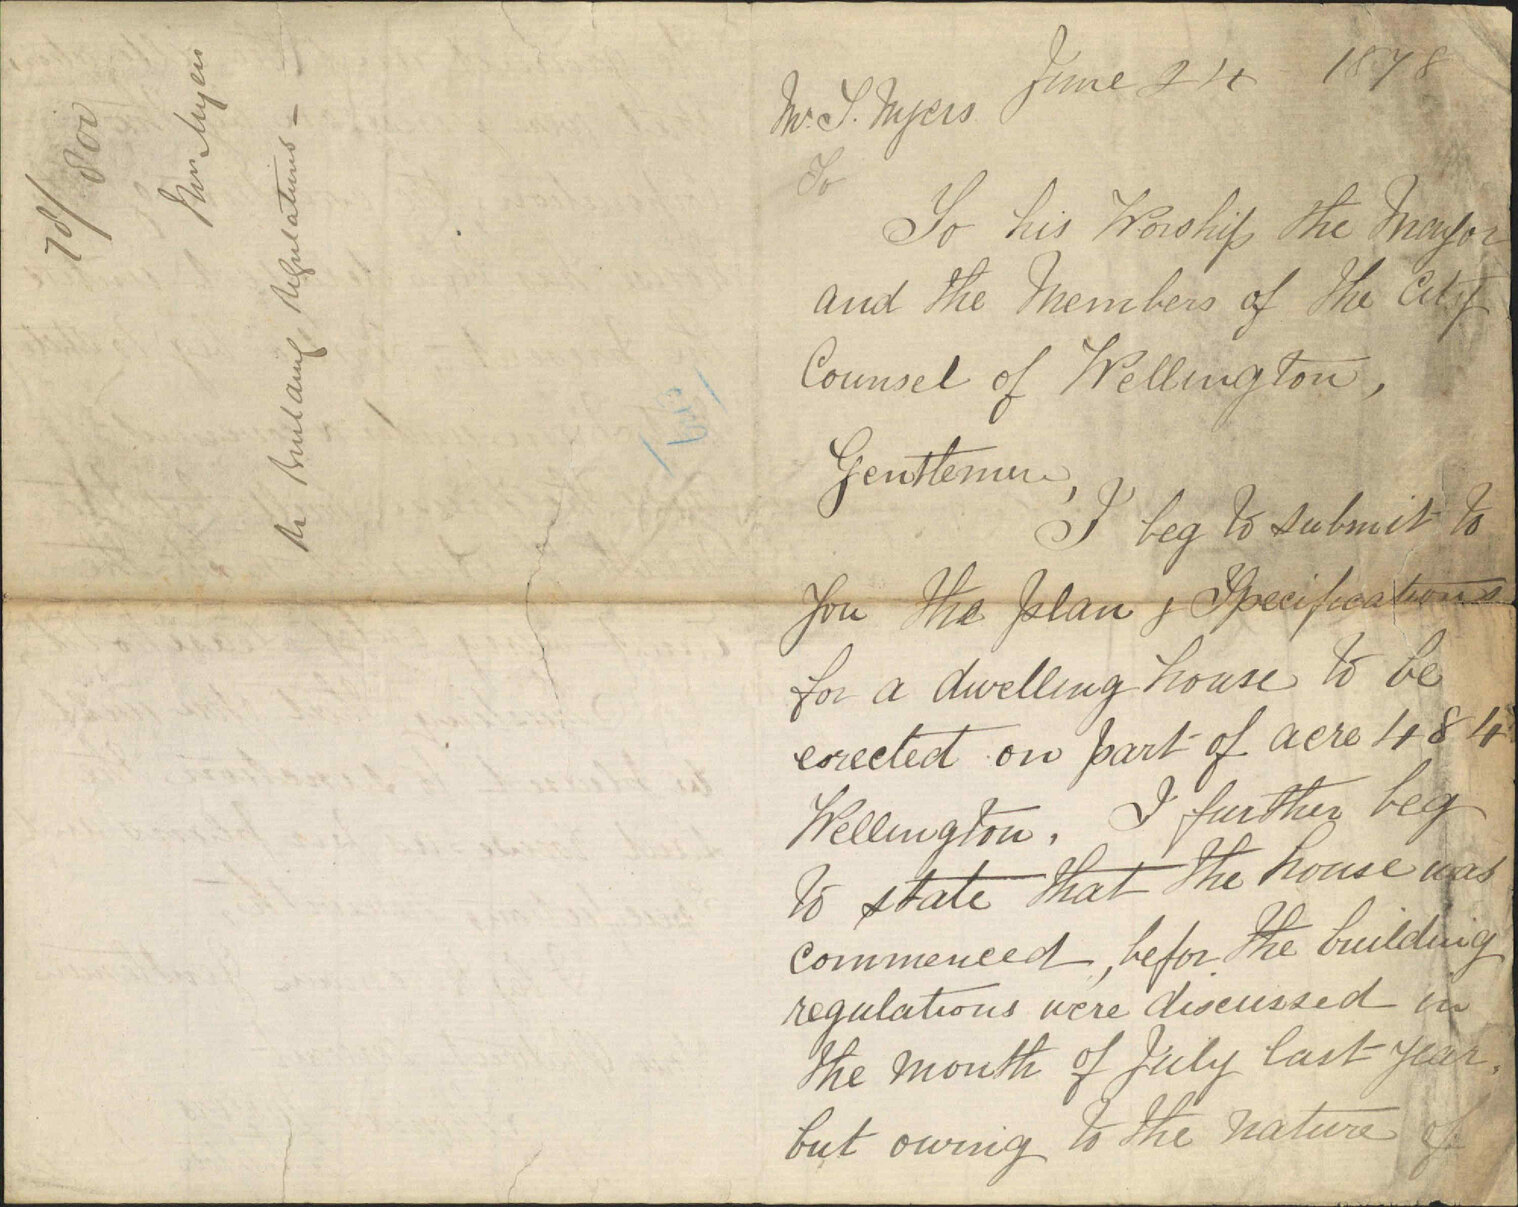 78/800
Mr Myers
Re Building Regulations -
June 24 1878
Mr. S. Myers
To
To his Worship the Mayor
and the Members of the City
Counsel of Wellington,
Gentlemen,
I beg to submit to
you the plan & Specifications
for a dwelling house to be
erected on part of acre 484
Wellington. I further beg
to state that the house was
commenced, befor the building
regulations were discussed in
the month of July last year.
but owing to the nature of